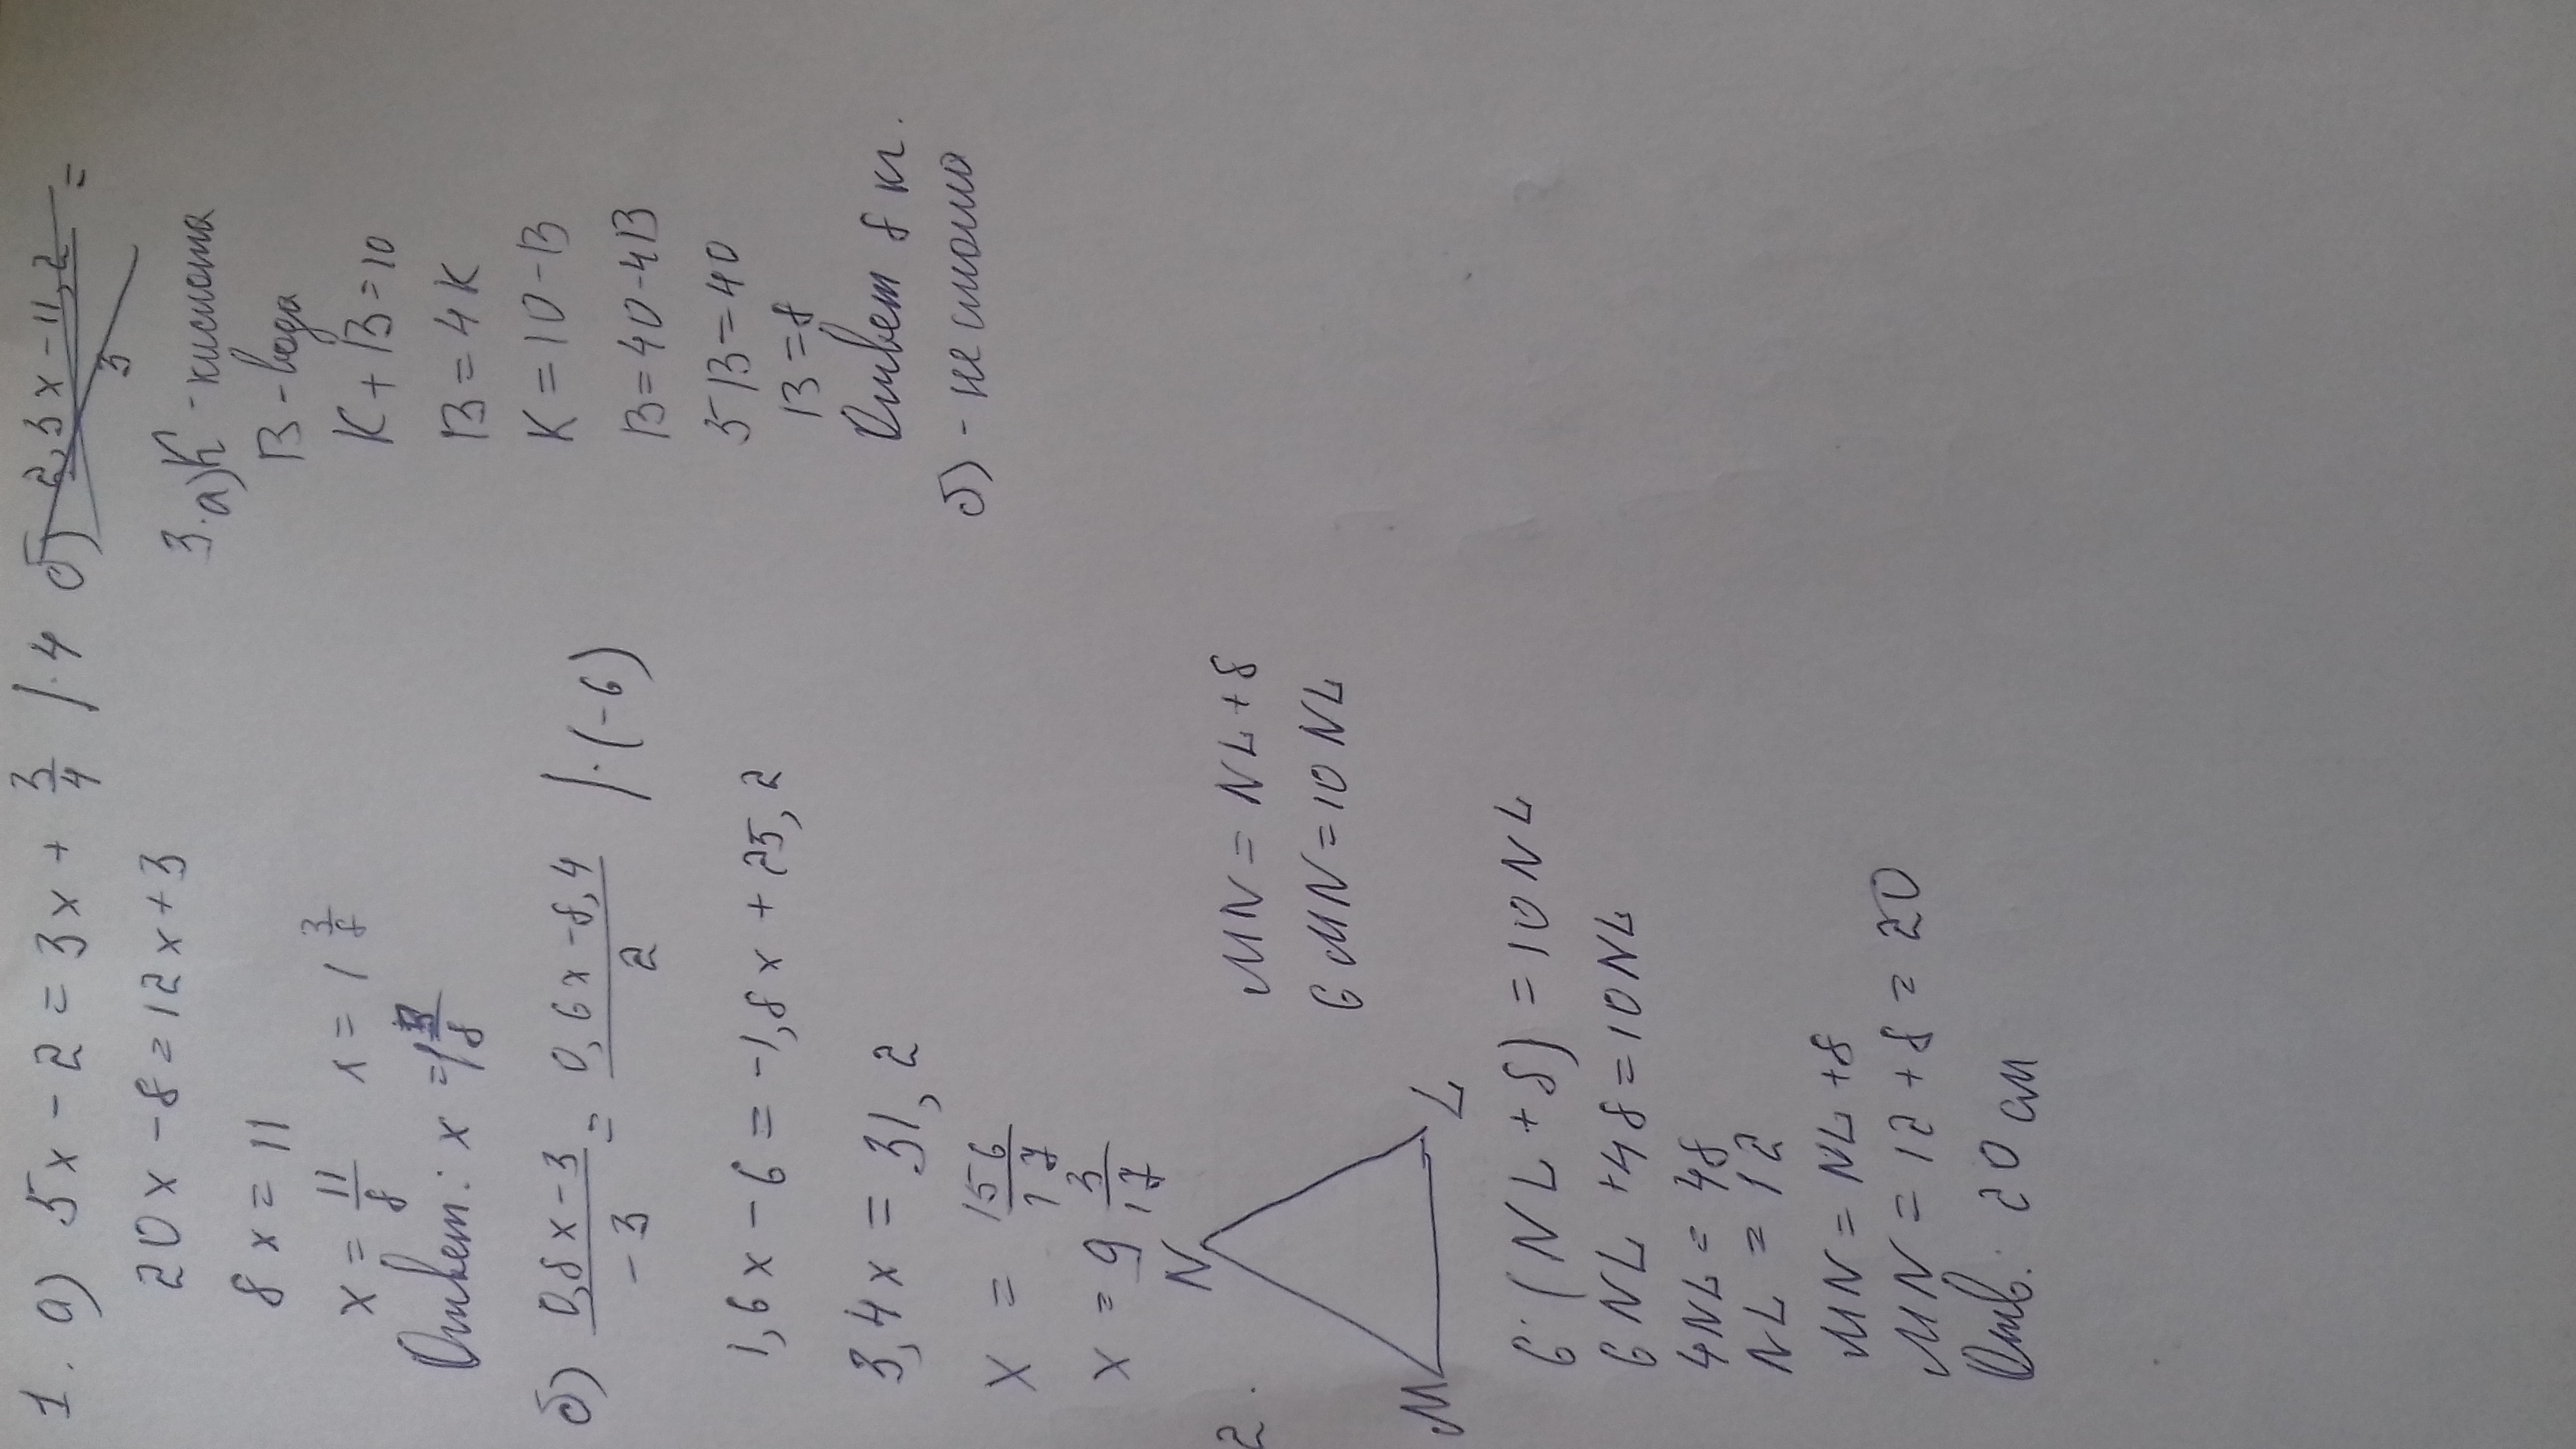 1. а) 5x - 2 = 3x + 3/4 | · 4
20x - 8 = 12x + 3
8x = 11
x = 11/8   x = 1 3/8
Ответ: x = 1 3/8
б) (0,8x - 3)/(-3) = (0,6x - 8,4)/2 | · (-6)
1,6x - 6 = -1,8x + 25,2
3,4x = 31,2
x = 156/17
x = 9 3/17
2.
N
M
L
MN = NL + 8
6 MN = 10 NL
6 · (NL + 8) = 10 NL
6 NL + 48 = 10 NL
4NL = 48
NL = 12
MN = NL + 8
MN = 12 + 8 = 20
Отв: 20 см
б) (2,3x - 11,2)/3 =
3. а) К - кислота
В - вода
К + В = 10
В = 4 К
К = 10 - В
В = 40 - 4В
5 В = 40
В = 8
Ответ 8 кг.
б) - не смогла